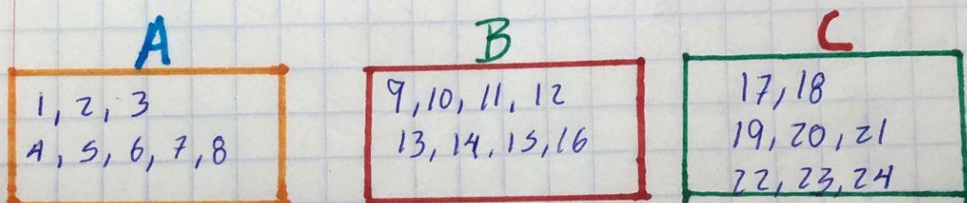 A
1, 2, 3
4, 5, 6, 7, 8
B
9, 10, 11, 12
13, 14, 15, 16
C
17, 18
19, 20, 21
22, 23, 24